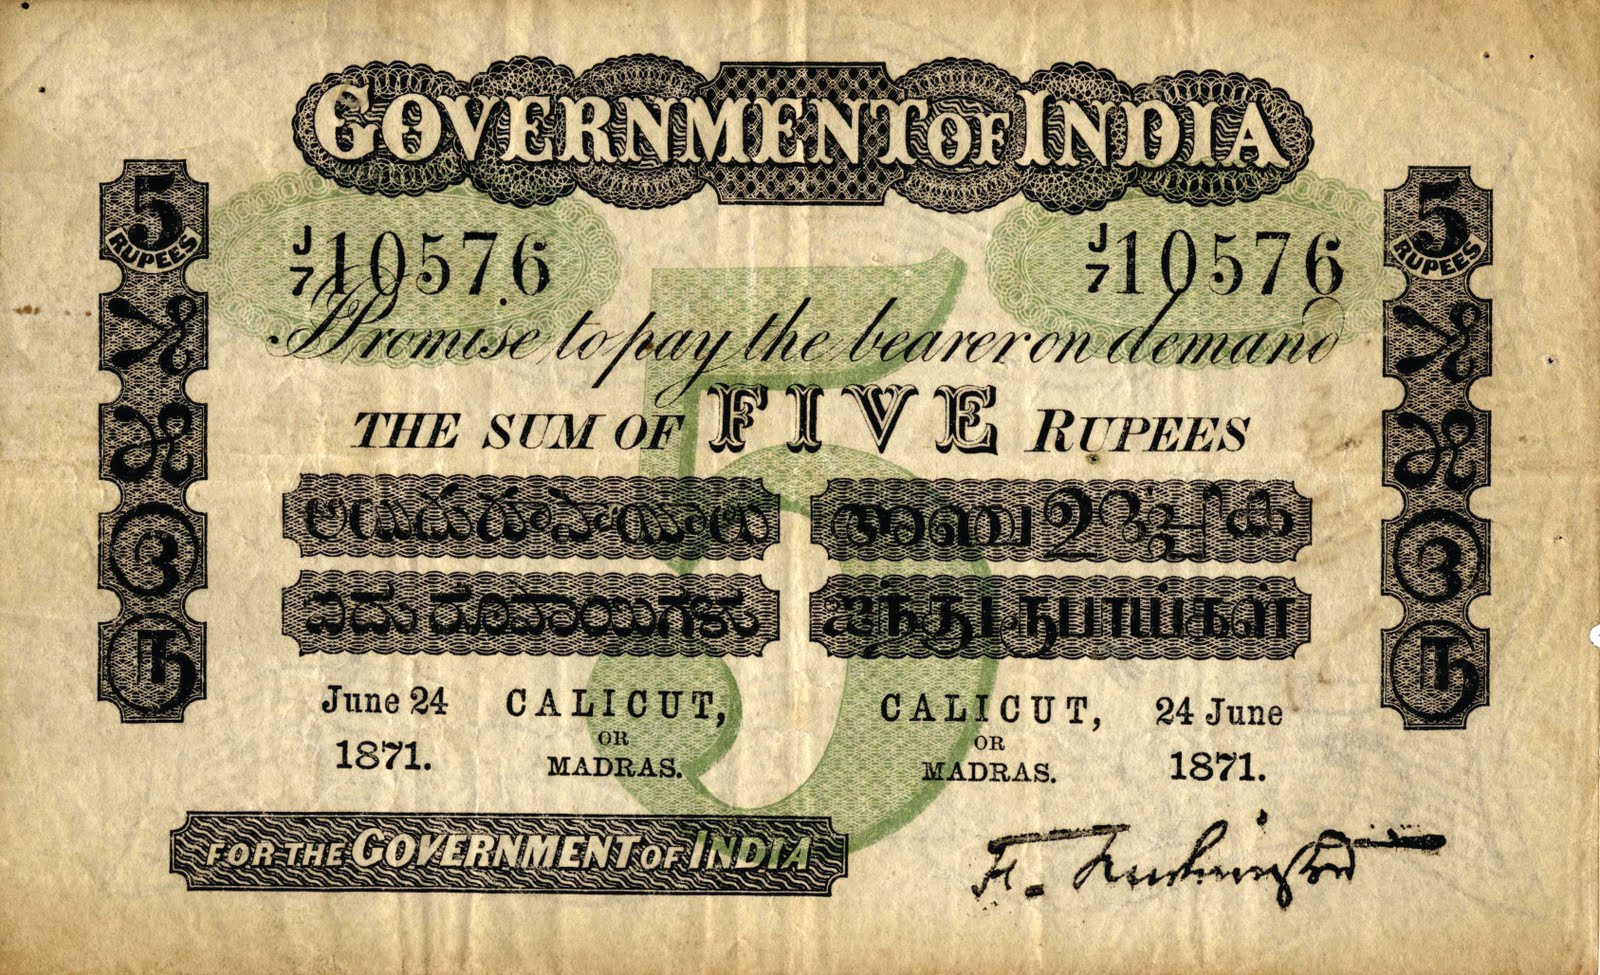 GOVERNMENT OF INDIA
5 RUPEES
5 RUPEES
J/7 10576
J/7 10576
I Promise to pay the bearer on demand
THE SUM OF FIVE RUPEES
ಐದು ರೂಪಾಯಿಗಳು
౫
౫
೫
೫
൫
൫
௫
௫
June 24 CALICUT, CALICUT, 24 June
OR OR
1871. MADRAS. MADRAS. 1871.
FOR THE GOVERNMENT OF INDIA